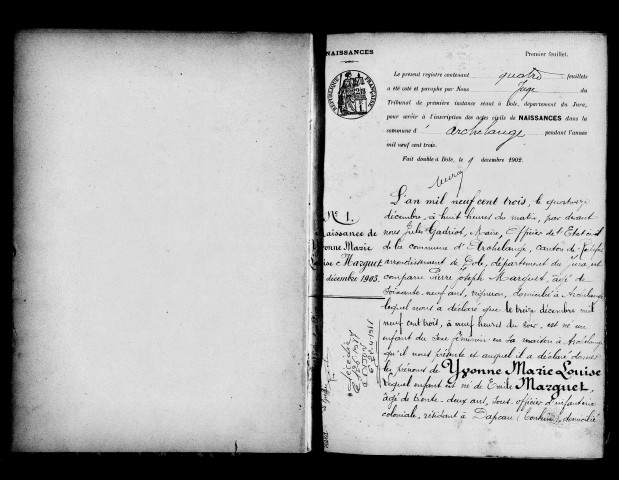 NAISSANCES
Premier feuillet.
RÉPUBLIQUE FRANÇAISE
Le présent registre contenant quatre feuillets
a été coté et paraphé par Nous Juge du
Tribunal de première instance séant à Dole, département du Jura,
pour servir à l'inscription des actes civils de NAISSANCES dans la
commune d' Archelange pendant l'année
mil neuf cent trois.
Fait double à Dole, le 9 décembre 1902.
N° 1.
Naissance de
Yvonne Marie
Louise Marguet
décembre 1903.
L'an mil neuf cent trois, le quatorze
décembre, à huit heures du matin, par devant
nous Jules Gadriot, Maire, Officier de l'Etat civil
de la commune d'Archelange, canton de
arrondissement de Dole, département du Jura, est
comparu Pierre Joseph Marguet, âgé de
soixante-neuf ans, vigneron, domicilié à Archelange
lequel nous a déclaré que le treize décembre mil
neuf cent trois, à neuf heures du soir, est né un
enfant du sexe féminin en sa maison à Archelange
qu'il nous présente et auquel il a déclaré donner
les prénoms de Yvonne Marie Louise
lequel enfant est né de Emile Marguet,
âgé de trente-deux ans, sous-officier d'infanterie
coloniale, résidant à Dapcau (Tonkin), domicilié
Décédée
à